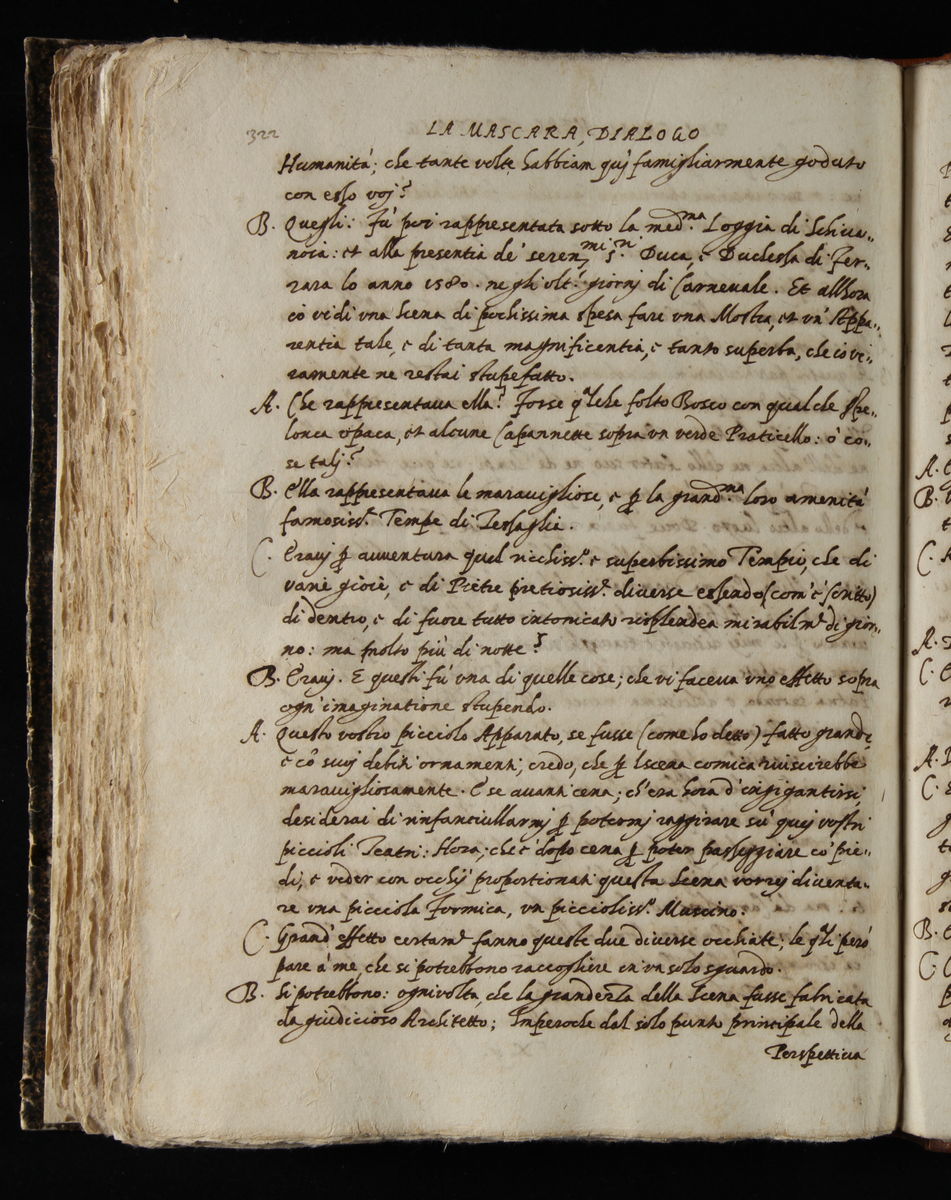 322
LA MASCARA, DIALOGO
Humanità; che tante volte habbiam quì famigliarmente goduto
con esso voj?
B. Quegli. Fù poi rappresentata sotto la med.ma Loggia di Schiua„
noia: et alla presentia de' seren.mi S.ri Duca, e Duchessa di Fer„
rara lo anno 1580. negli olt.i giornj di Carneuale. Et allhora
io vidi vna Scena di pochissima spesa fare vna Mostra, et vn' Appa„
rentia tale, e di tanta magnificentia, e tanto superba, che io ve„
ramente ne restai stupefatto.
A. Che rappresentaua ella? Forse q̃lche folto Bosco con qualche Spe„
lonca opaca, et alcune Capannette sopra vn verde Praticello: ò co„
se talj?
B. Ella rappresentaua le marauigliose, e p̱ la grand.ma loro amenità
famosiss.e Tempe di Tessaglia.
C. Erauj p̱ auuentura quel ricchiss.o e superbissimo Tempio, che di
varie gioie, e di Pietre pretiosiss.e diuerse essendo (com'è scritto)
di dentro, e di fuore tutto intonicato risplendea mirabilm.te di gior„
no: ma molto più di notte?
B. Erauj. E questi fù vna di quelle cose; che vi faceua vno effetto sopra
ogn'imaginatione stupendo.
A. Questo vostro picciolo Apparato, se fusse (come ho detto) fatto grande,
e cõ suoj debiti ornamenti, credo, che p̱ Iscena comica riuscirebbe
marauigliosamente. E se auanti cena; ch'era hora d'ingigantirsi,
desiderai di rinfanciullarmj p̱ potermj raggirare sù quej vostri
piccioli Teatri: Hora; che è dopo cena p̱ poter passeggiare co' pie„
di, e veder con occhij proportionati questa Scena vorrej diuenta„
re vna picciola Formica, vn piccioliss.o Muscino.
C. Grand' effetto certam.te fanno queste due diuerse occhiate; le q̃li però
pare à me, che si potrebbono raccogliere in vn solo sguardo.
B. Si potrebbono: ogni volta, che la grandezza della Scena fusse fabricata
da giudiccioso Architetto; Imperoche dal solo punto principale della
Perspettiua